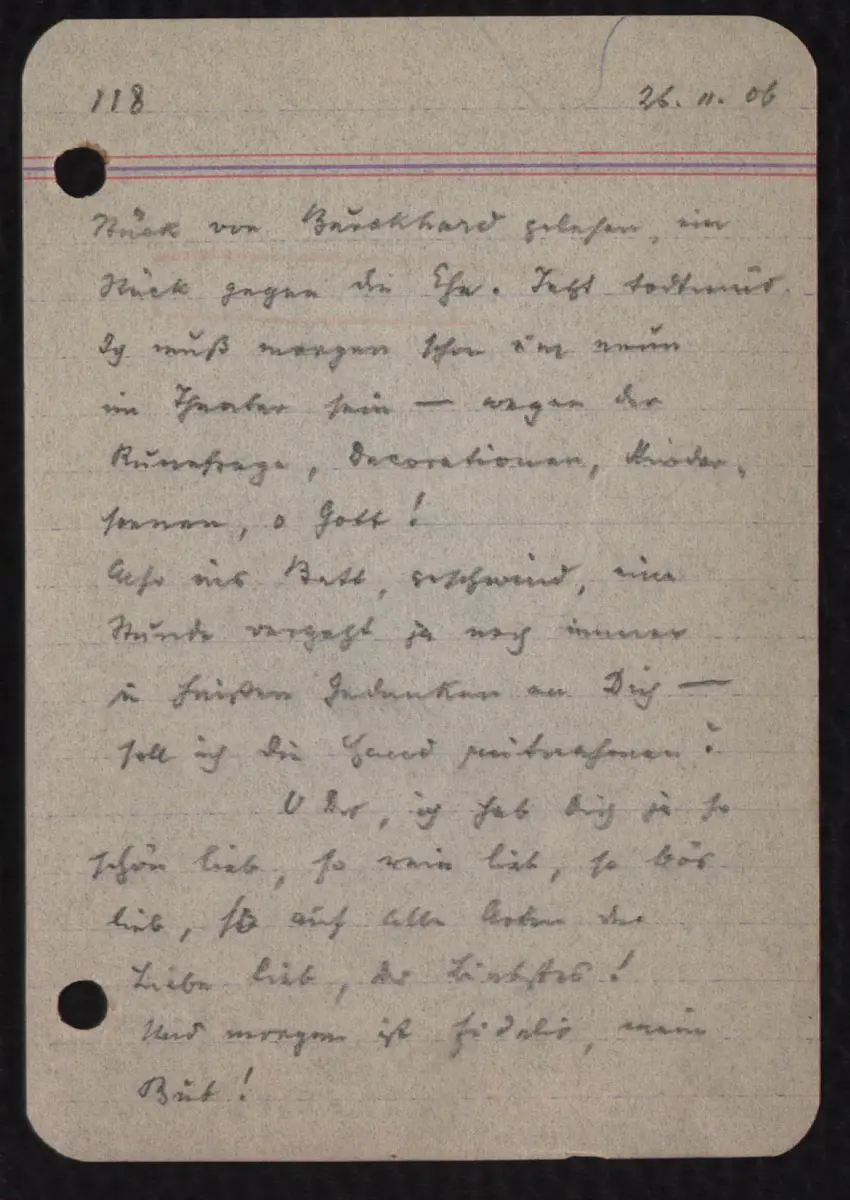 118 26. 11. 06
Stück von Burckhard gelesen, ein
Stück gegen die Ehe. Jetzt todtmüd.
Ich muß morgen schon um neun
im Theater sein — wegen der
, Decorationen, Kinder-
scenen, o Gott!
Also ins Bett, geschwind, eine
Stunde vergeht ja noch immer
in heißen Gedanken an Dich —
soll ich die Hand mitnehmen?
O Du, ich hab Dich ja so
schön lieb, so rein lieb, so bös
lieb, so auf alle Arten der
Liebe lieb, Du Liebstes!
Und morgen ist Fidelio, mein
Bub!